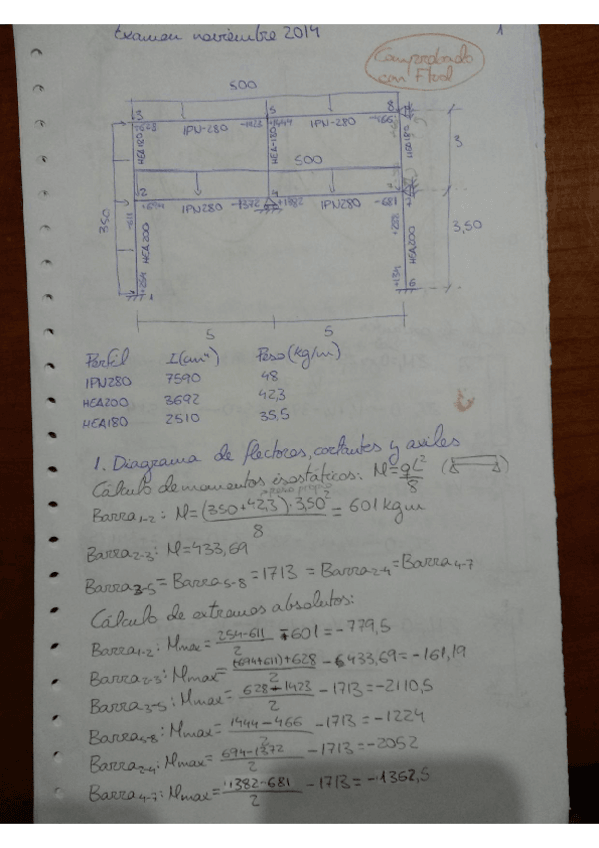 Examen noviembre 2014
1
Comprobado
con Ftool
500
3
5
8
628
-1423
+1444
-466
IPN-280
IPN-280
HEA180
HEA-180
HEA180
3
500
350
2
7
-694
IPN280
-1372
+1382
IPN280
-681
-611
HEA200
+254
1
HEA200
+134
6
3,50
5
5
Perfil I(cm⁴) Peso(kg/m)
IPN280 7590 48
HEA200 3692 42,3
HEA180 2510 35,5
1. Diagrama de flectores, cortantes y axiles
Cálculo de momentos isostáticos: M=qL²/8
peso propio
Barra1-2: M=(350+42,3)·3,50²/8 = 601 kgm
Barra2-3: M=433,69
Barra3-5=Barra5-8=1713=Barra2-4=Barra4-7
Cálculo de extremos absolutos:
Barra1-2: Mmax= 254-611/2 -601=-779,5
Barra2-3: Mmax= (-694+611)+628/2 -433,69=-161,19
Barra3-5: Mmax= 628-1423/2 -1713=-2110,5
Barra5-8: Mmax= 1444-466/2 -1713=-1224
Barra2-4: Mmax= 694-1372/2 -1713=-2052
Barra4-7: Mmax= 1382-681/2 -1713=-1362,5